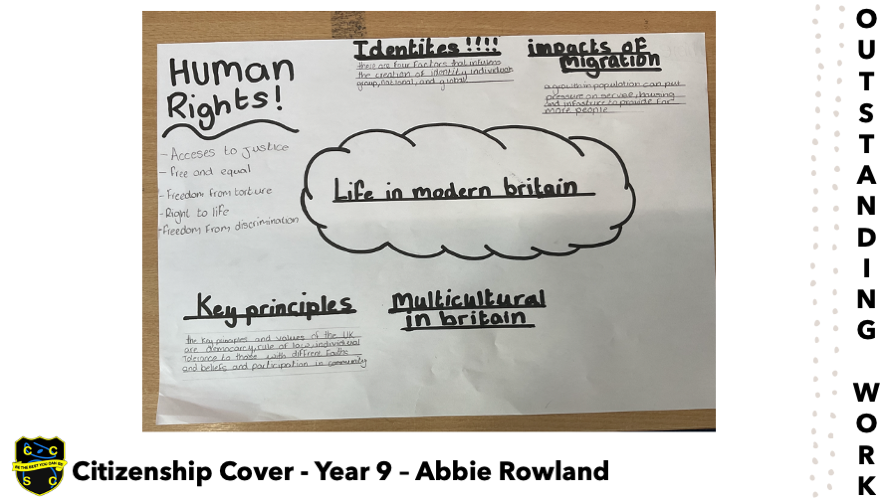 Human
Rights!
- Acceses to justice
- free and equal
- Freedom from torture
- Right to life
- Freedom from discrimination
Identites !!!!
there are four factors that influens
the creation of identity individuals
group, national, and global
impacts of
migration
a growth in population can put
pressure on service, housing
and infastructe to provide for
more people
Life in modern britain
Key principles
the key principles and values of the UK
are democarcy, rule of law, individual
Tolerance to those with diffrent faiths
and beliefs and participation in community
Multicultural
in britain
OUTSTANDING WORK
C C
BE THE BEST YOU CAN BE
S C
Citizenship Cover - Year 9 – Abbie Rowland